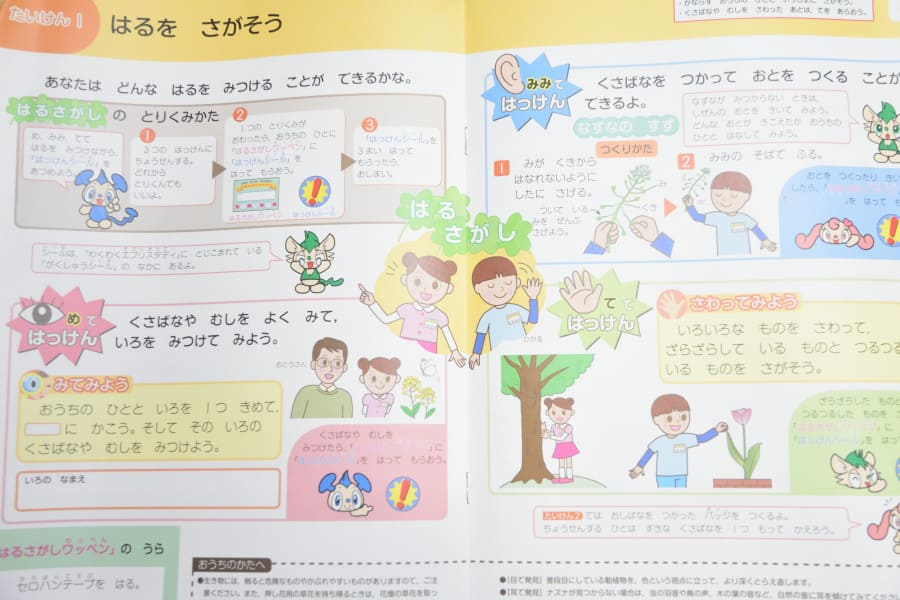 たいけん1
はるを さがそう
・くさばなや むしを さわった あとは、てを あらおう。
あなたは どんな はるを みつける ことが できるかな。
はるさがし の とりくみかた
め、みみ、てで
はるを みつけながら、
「はっけんシール」を
あつめよう。
1
3つの はっけんに
ちょうせんする。
どれから
とりくんでも
いいよ。
2
1つの とりくみが
おわったら、おうちの ひとに
「はるさがしワッペン」に
「はっけんシール」を
はって もらおう。
はるさがしワッペン
はっけんシール
3
「はっけんシール」を
3まい はって
もらったら、
おしまい。
シールは、「わくわくエブリスタディ」に とじこまれて いる
「がくしゅうシール」の なかに あるよ。
はる
さがし
めで
はっけん
くさばなや むしを よく みて、
いろを みつけて みよう。
みてみよう
おうちの ひとと いろを 1つ きめて、
に かこう。そして その いろの
くさばなや むしを みつけよう。
いろの なまえ
おとうさん
くさばなや むしを
みつけたら、「
」に
「はっけんシール」を はって もらおう。
みみで
はっけん
くさばなを つかって おとを つくる ことが
できるよ。
なずなの すず
つくりかた
なずなが みつからない ときは、
しぜんの おとを きいて みよう。
どんな おとが きこえたか おうちの
ひとと はなして みよう。
1
みが くきから
はなれないように
したに さげる。
ついて いる
みを ぜんぶ
さげよう。
み
くき
2
みみの そばで ふる。
おとを つくったり きい
したら、
を はって もら
ひかる
てで
はっけん
さわってみよう
いろいろな ものを さわって、
ざらざらして いる ものと つるつる
いる ものを さがそう。
ざらざらした もの
つるつるした ものを さ
「はるさがしワッペン」に
「はっけんシール」を
はって もらおう。
たいけん2 では おしばなを つかった バッジを つくるよ。
ちょうせんする ひとは すきな くさばなを 1つ もって かえろう。
はるさがしワッペン」の うら
セロハンテープを はる。
おうちのかたへ
●生き物には、触ると危険なものやかぶれやすいものがありますので、ご注
意ください。また、押し花用の草花を持ち帰るときは、花壇の草花を取っ
●【目で発見】普段目にしている動植物を、色という視点に立って、より深くとらえ直します。
●【耳で発見】ナズナが見つからない場合は、虫の羽音や鳥の声、木の葉の音など、自然の音に耳を傾けてみてくださ